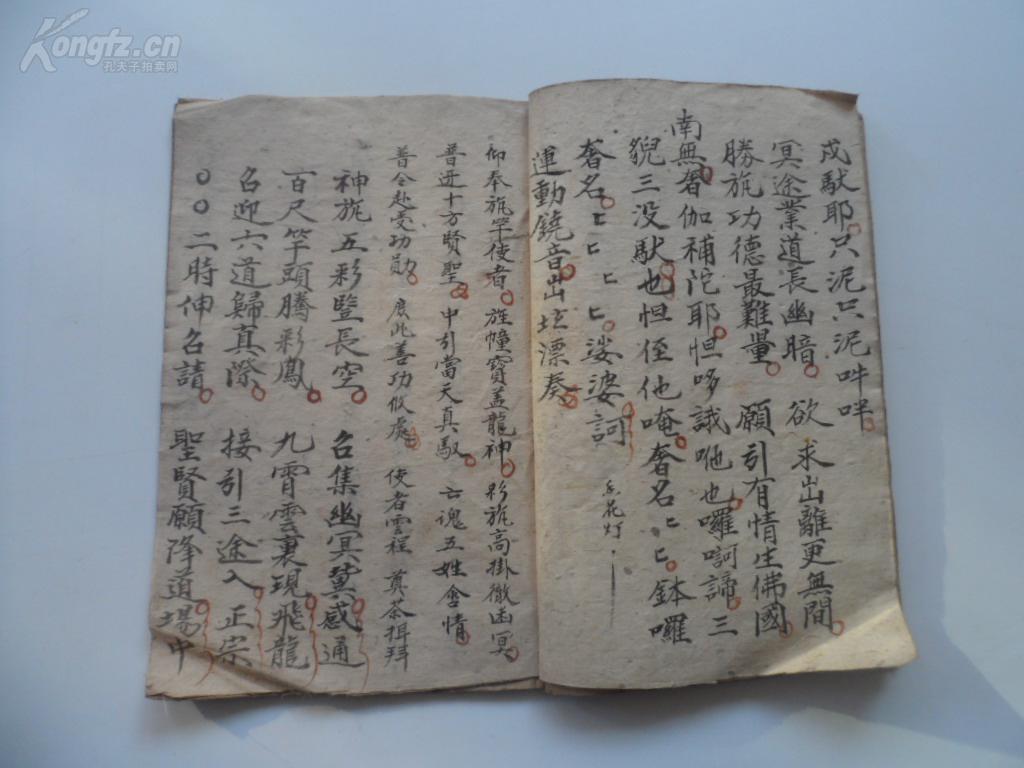 戍馱耶只泥只泥吽吽
冥途業道長幽暗 欲求出離更無間
勝旎功德最難量 願引有情生佛國
南無奢伽補陀耶怛哆誐哋也囉訶諦三
貎三没馱也怛侄他唵奢名ヒヒ鉢囉
奢名ヒヒヒヒ娑婆訶
運動鐃音出坛漂奏
香花灯
仰奉旎竿使者 旌幢寳盖龍神 彩旎高掛徹幽冥
普迓十方賢聖 中引當天真馭 亡魂五姓含情
普仝赴受功勛 展此善功攸處 使者雲程 奠茶揖拜
神旎五彩豎長空 召集幽冥冀感通
百尺竿頭騰彩鳳 九霄雲裏現飛龍
召迎六道歸真際 接引三途入正宗
○○二時伸召請 聖賢願降道場中
Kongfz.cn
孔夫子拍卖网